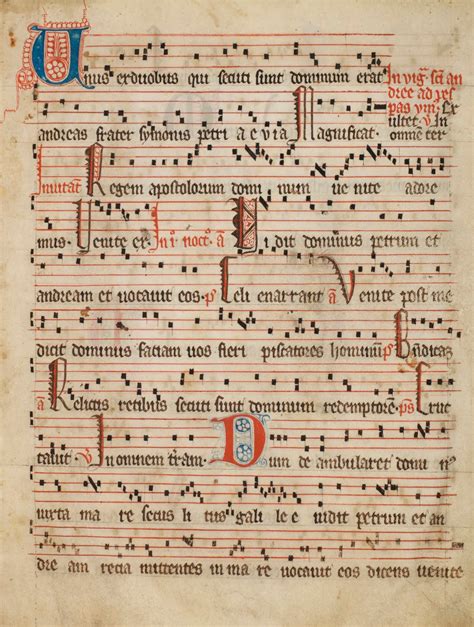 Unus exduobus qui secuti sunt dominum erat
In vigꝭ sci an
dree ad ves
pas ym̄. Ex
ultet. V In
omnem ter
andreas frater symonis petri a e v i a Magnificat.
Inuitat̄ Regem apostolorum domi num ue nite adore
mus. Uenite ex. In i. noct.᷒ a᷒ Uidit dominus petrum et
andream et uocauit eos. p᷒ Celi enarrant a᷒ Venite post me
dicit dominus faciam uos fieri piscatores hominum. p᷒ Bn̄dicaꝫ
a᷒ Relictis retibus secuti sunt dominum redemptorē. ps᷒ Eruc
tauit. V In omnem tr̄am. Dum de ambularet domi nꝰ
iuxta ma re secus li tus gali le e uidit petrum et an
dre am recia mittentes in ma re uocauit eos dicens uenite